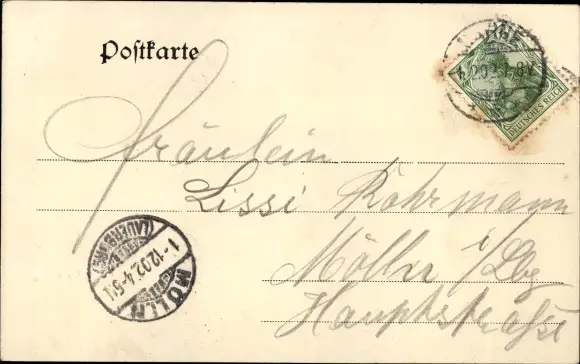 Postkarte
DEUTSCHES REICH
Fräulein
Lissi Rohrmann
Mölln i/Lbg
Hauptstraße
MÖLLN
1-12.02.4-5N
(LAUENBURG)